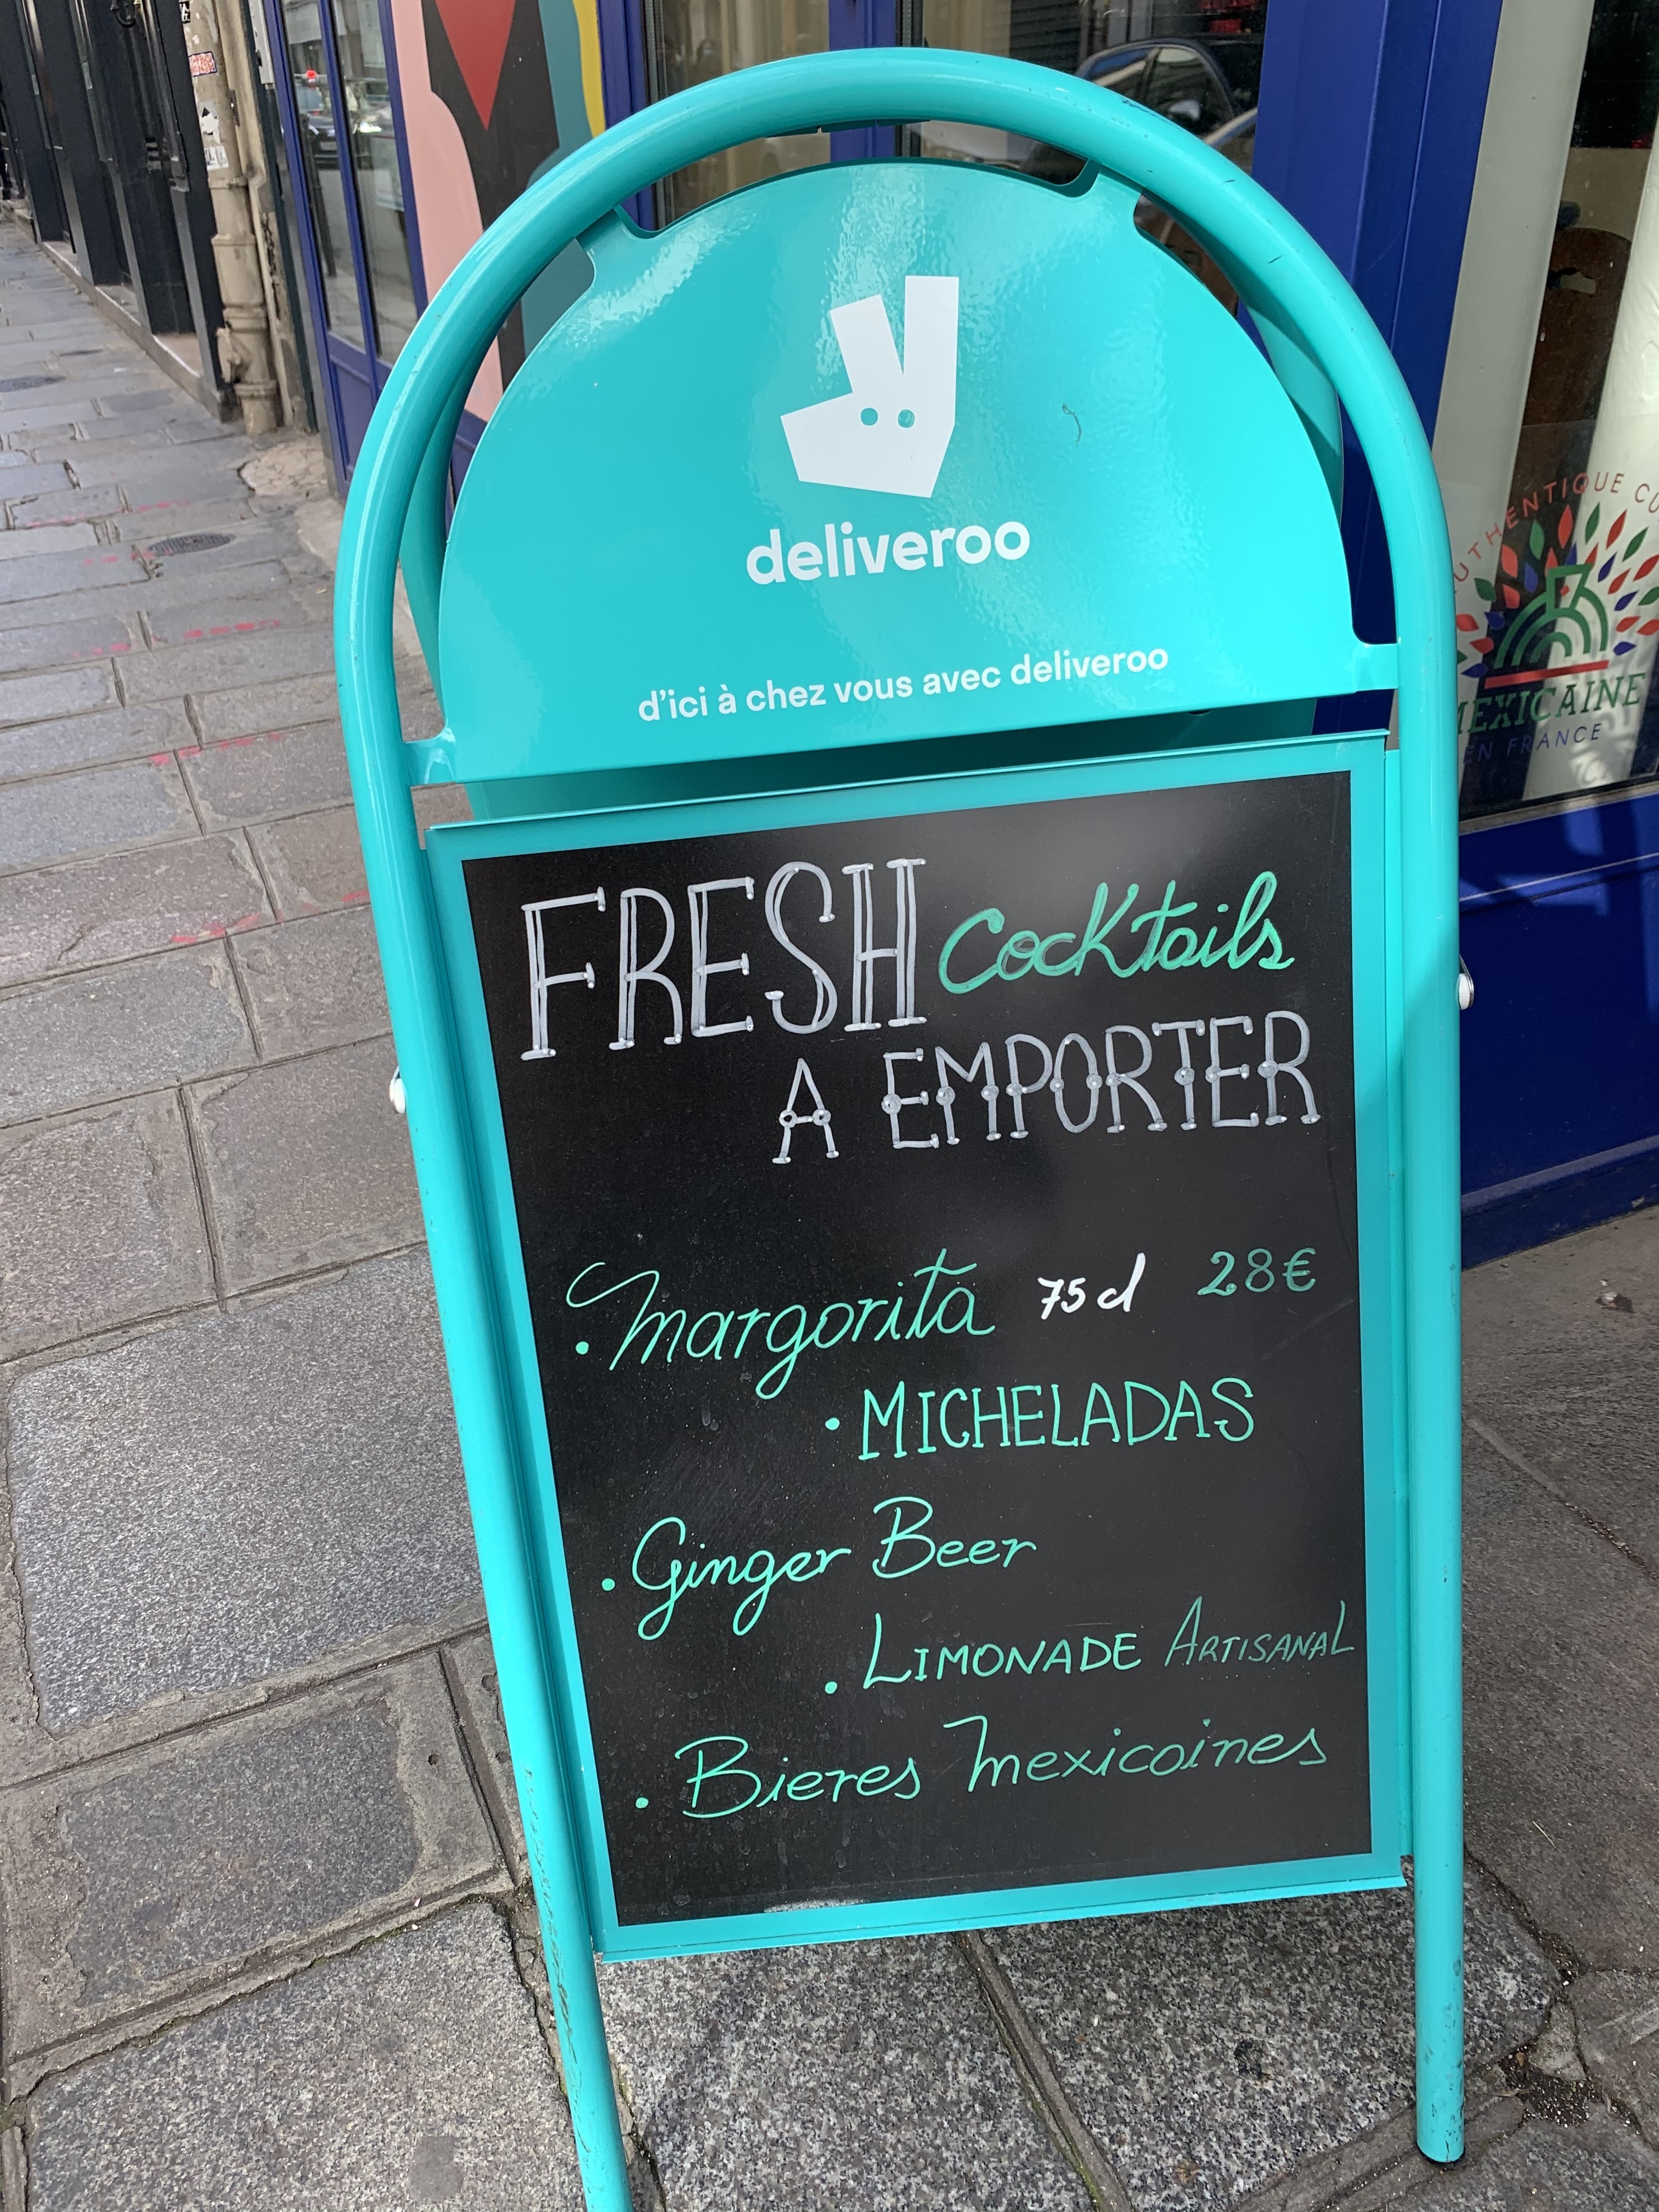 deliveroo
d'ici à chez vous avec deliveroo
FRESH Cocktails
A EMPORTER
• Margorita 75cl 28€
• MICHELADAS
• Ginger Beer
• LIMONADE ARTISANAL
• Bieres Mexicaines
AUTHENTIQUE CU
MEXICAINE
EN FRANCE